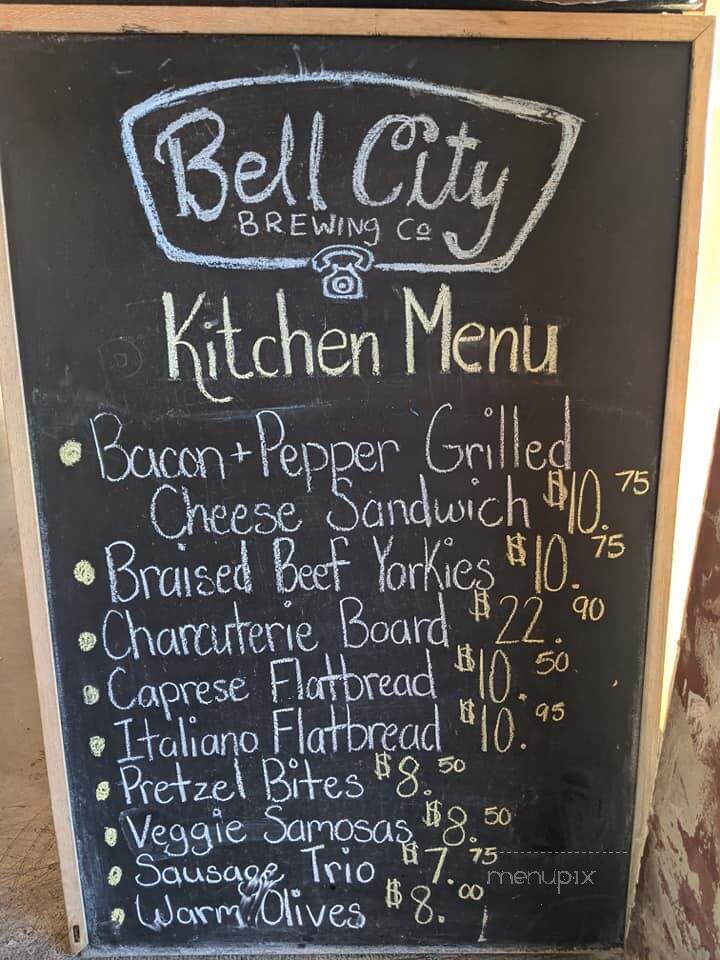 Bell City
BREWING Co
Kitchen Menu
Bacon + Pepper Grilled
Cheese Sandwich $10.75
Braised Beef Yorkies $10.75
Charcuterie Board $22.90
Caprese Flatbread $10.50
Italiano Flatbread $10.95
Pretzel Bites $8.50
Veggie Samosas $8.50
Sausage Trio $7.75
Warm Olives $8.00
menupix